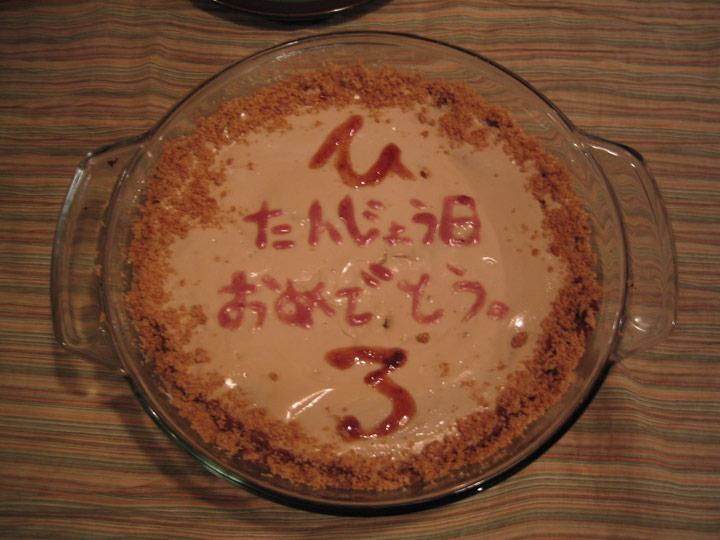 ひ
たんじょう日
おめでとう。
ろ